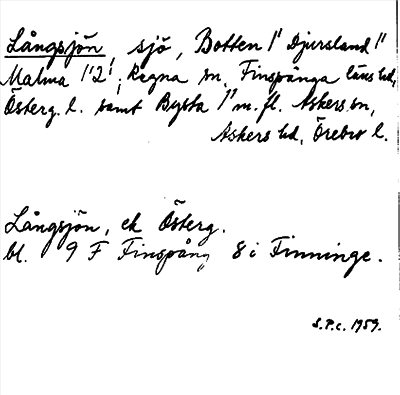 Långsjön, sjö, Botten 1" Djursland 1"
Malma 1'2', Regna sn, Finspånga läns hd,
Österg. l. samt Bysta 1" m. fl. Askers sn,
Askers hd, Örebro l.
Långsjön, ek Österg.
bl. 9 F Finspång 8 i Finninge.
S.P.c. 1959.